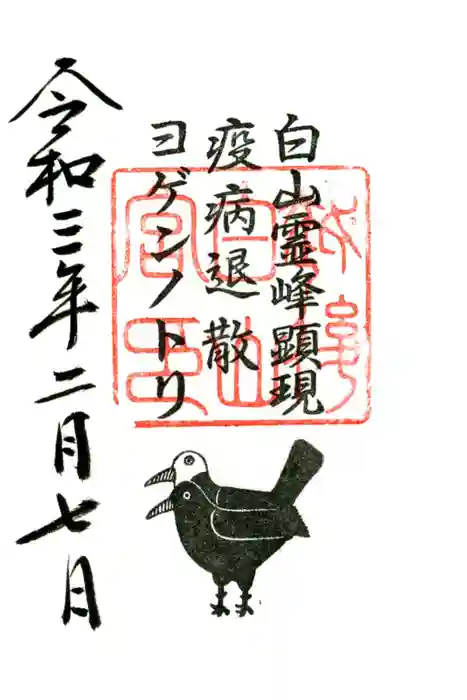 白山霊峰顕現
疫病退散
ヨゲンノトリ
令和三年二月七日